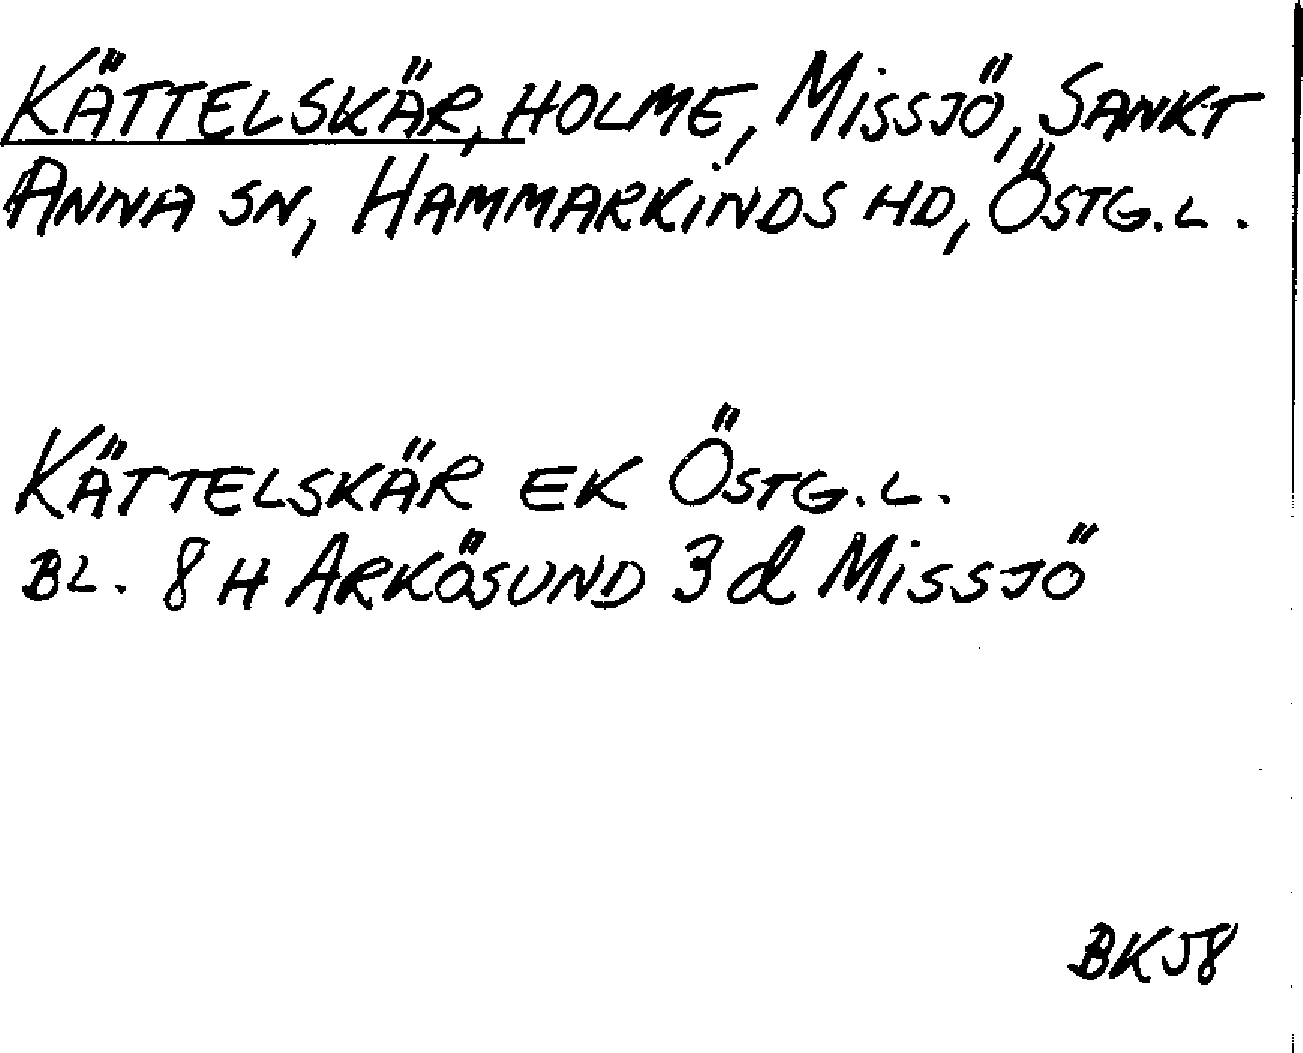 KÄTTELSKÄR, HOLME, MISSJÖ, SANKT
ANNA SN, HAMMARKINDS HD, ÖSTG.L.
KÄTTELSKÄR EK ÖSTG.L.
BL. 8 H ARKÖSUND 3 d MISSJÖ
BKJ8